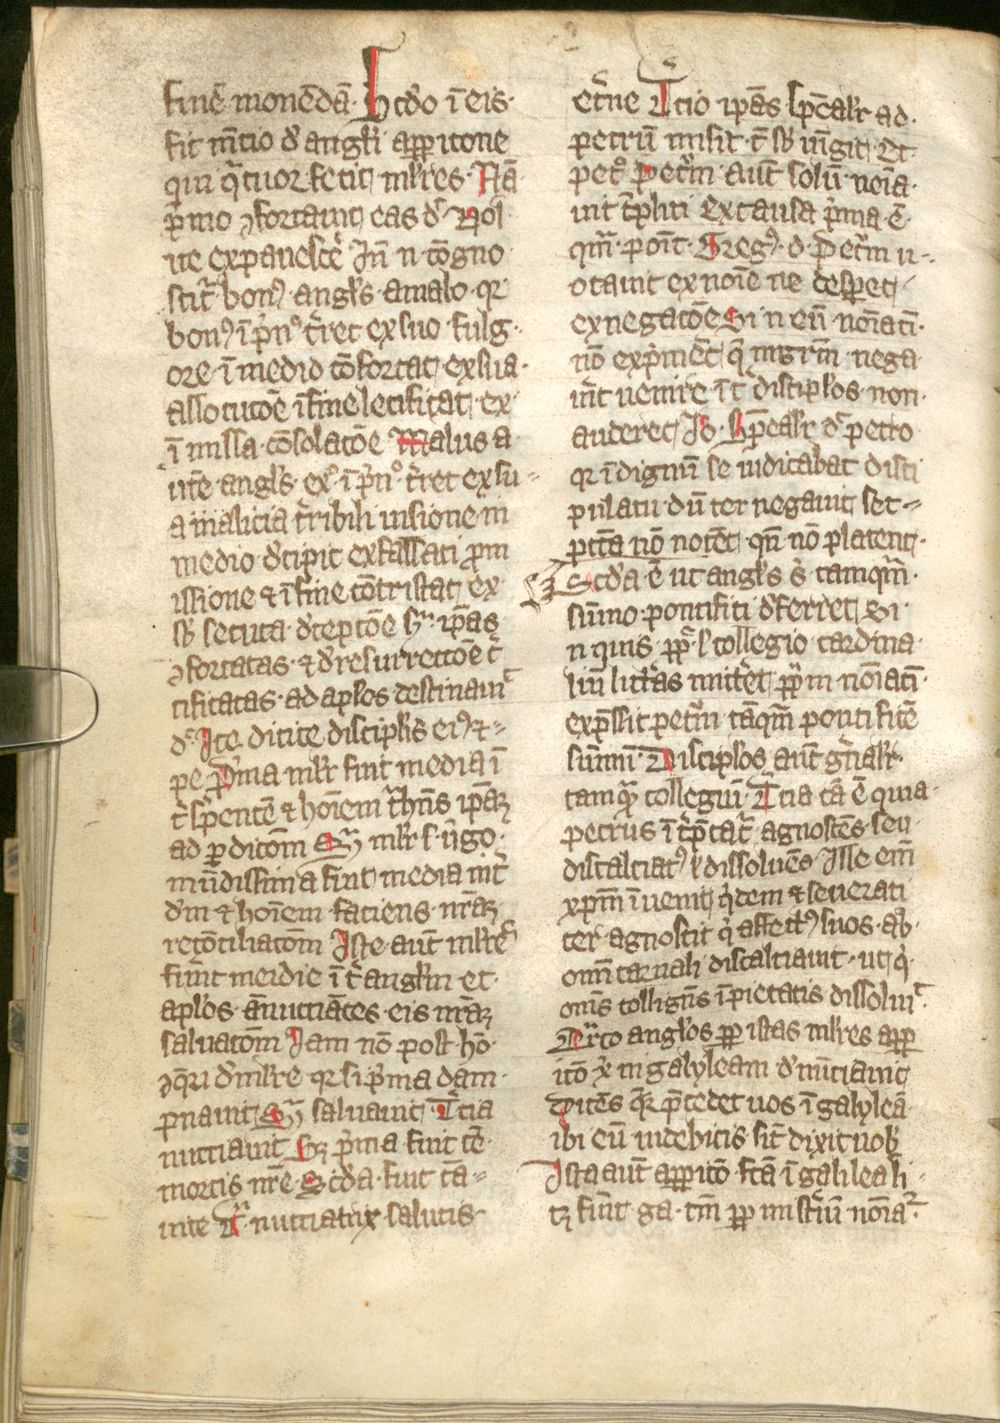 finē monēdā Scdo ī eis
fit m̄tio d' angli apparitone
qui q̄tuor fecit mlr̄es Nā
p̄mo ꝯfortauit eas d̄ Nol
ite expauescē̄ Jn̄ n cōgno
scit̄ bonꝰ angl̓s a malo qr
bonꝰ ī p̄nº t̄ret ex suo fulg
ore ī medio cōfortat ex sua
allocucōe ī fine letificat ex
ī missa cōsolacōe Malus a
ūte angl̓s eº ī p̄nº t̄ret ex su
a malicia t̄ribili uisione in
medio d'cipit ex fallaci prom
issione ⁊ ī fine cōtristat ex
sb̓ secuta d'cepcōe Sꝫ ip̄as
ꝯfortatas ⁊ d' resurreccōe c̄
tificatas ad apl̓os destinauit
d̄ Ite dicite discipl̓is eiꝰ ⁊
pe P̄ma mlr̓ fuit media ī
t̄ s̄pentē ⁊ hoīem t̄hēs ip̄aꝫ
ad p̲dicōm S̄ mlr̓ s̓ ūgo
mūdissima fuit media int̄
d'm ⁊ hoīem faciens nr̄aꝫ
recōciliacōm Iste aut̄ mlr̓es
fuer̄t medie ī t̄ angl̓m et
apl̓os ānūciātes eis nr̄aꝫ
saluacōm Iam nō post hō
ꝯq̄ri d' mlr̓e qr si p̄ma dam
pnauit S̄ saluauit T̄cia
nūciauit Sꝫ p̄ma fuit cē
mortis nr̄e Scd̓a fuit cā
uite T̄ nūciatrix salutis
et̄ne T̄cio ip̄as sp̄calr̓ ad
petrū misit c̄ sb̓ iūgit Et
petº Pet̄m aut̄ solū noīa
uit t̄pliti ex causa p̄ma ē
qm̄ ponit Gregꝰ d̓ Pet̄m u
ocauit ex noīe ne despet
ex negacōe Si n eū noīati
nō exp̄met q̄ mgr̄m nega
uit uenire īt̄ discipl̓os non
auderet Jō sp̄calr̓ d̄ petro
qr īdignū se iudicabat disci
pulatu dū ter negauit set
pct̄a nō nocēt qn̄ nō placent
Scd̓a ē ut angl̓s s̓ tamqm̄
sūmo pontifici d'ferret Si
n quis pp̄ l̓ collegio cardina
liū litt̄as mittet pp̄m noīati
exp̄ssit pet̄m tāqm̄ pontificē
sūmū Discipl̓os aut̄ gn̄alr̓
tamqꝫ collegiū T̄cia cā ē quia
petrus īt̄p̄tat̄ agnoscēs seu
discalciatꝰ l̓ dissoluēs Ille em̄
xp̄m īuenit q̄dem ⁊ seueraci
ter agnoscit q̄ affectꝰ suos ab
om̄i carnali discalciauit ut q̄
om̄s colligēs īpietatis dissoluit
Q̄rto angl̓os pp̄ istas mlr̓es appa
icō x̄ in galyleam d' nūciauit
Dicēs q̄r p̄cedet uos ī galyleā
ibi eū uidebitis sic̄ dixit uob̓
Ista aut̄ apparicō fc̄a ī galilea l̓i
cꝫ fuit ga tm̄ pp̄ mist̄iū noīat̄